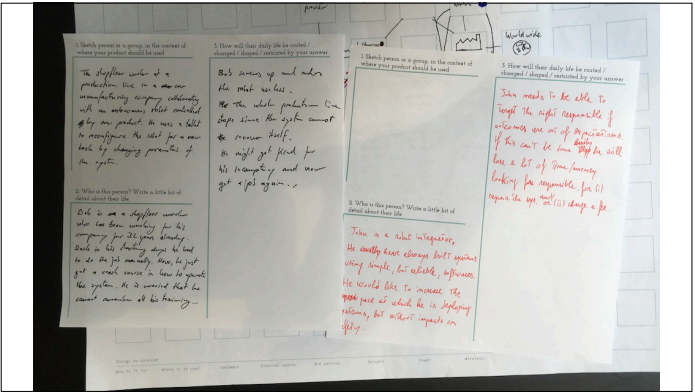 World wide
1. Sketch person or a group, in the context of
where your product should be used
The shopfloor worker at a
production line in a car
manufacturing company collaborating
with an autonomous robot controlled
by our product. He uses a tablet
to reconfigure the robot for a new
task by changing parameters of
the system.
2. Who is this person? Write a little bit of
detail about their life
Bob is a shopfloor worker
who has been working for his
company for 32 years already.
Back in his starting days he had
to do the job manually. Now, he just
got a crash course in how to operate
the system. He is worried that he
cannot remember all his training...
3. How will their daily life be routed /
changed / shaped / restricted by your answer
Bob screws up and makes
the robot useless.
The whole production line
stops since the system cannot
recover itself.
He might get fired for
his incompetency and never
get a job again...
1. Sketch person or a group, in the context of
where your product should be used
2. Who is this person? Write a little bit of
detail about their life
John is a robot integrator,
He have always built systems
using simple, but reliable, softwares.
He would like to increase the
pace at which he is deploying
systems, but without impacts on
safety.
3. How will their daily life be routed /
changed / shaped / restricted by your answer
John needs to be able to
target the right responsible if
outcomes are out of expectations
if this can't be done easily he will
lose a lot of time/money
looking for responsible for (i)
repair the sys. or (ii) charge a fee.
Who is it for
Where is it used
Hardware
External people
Servers
Power
Wireless